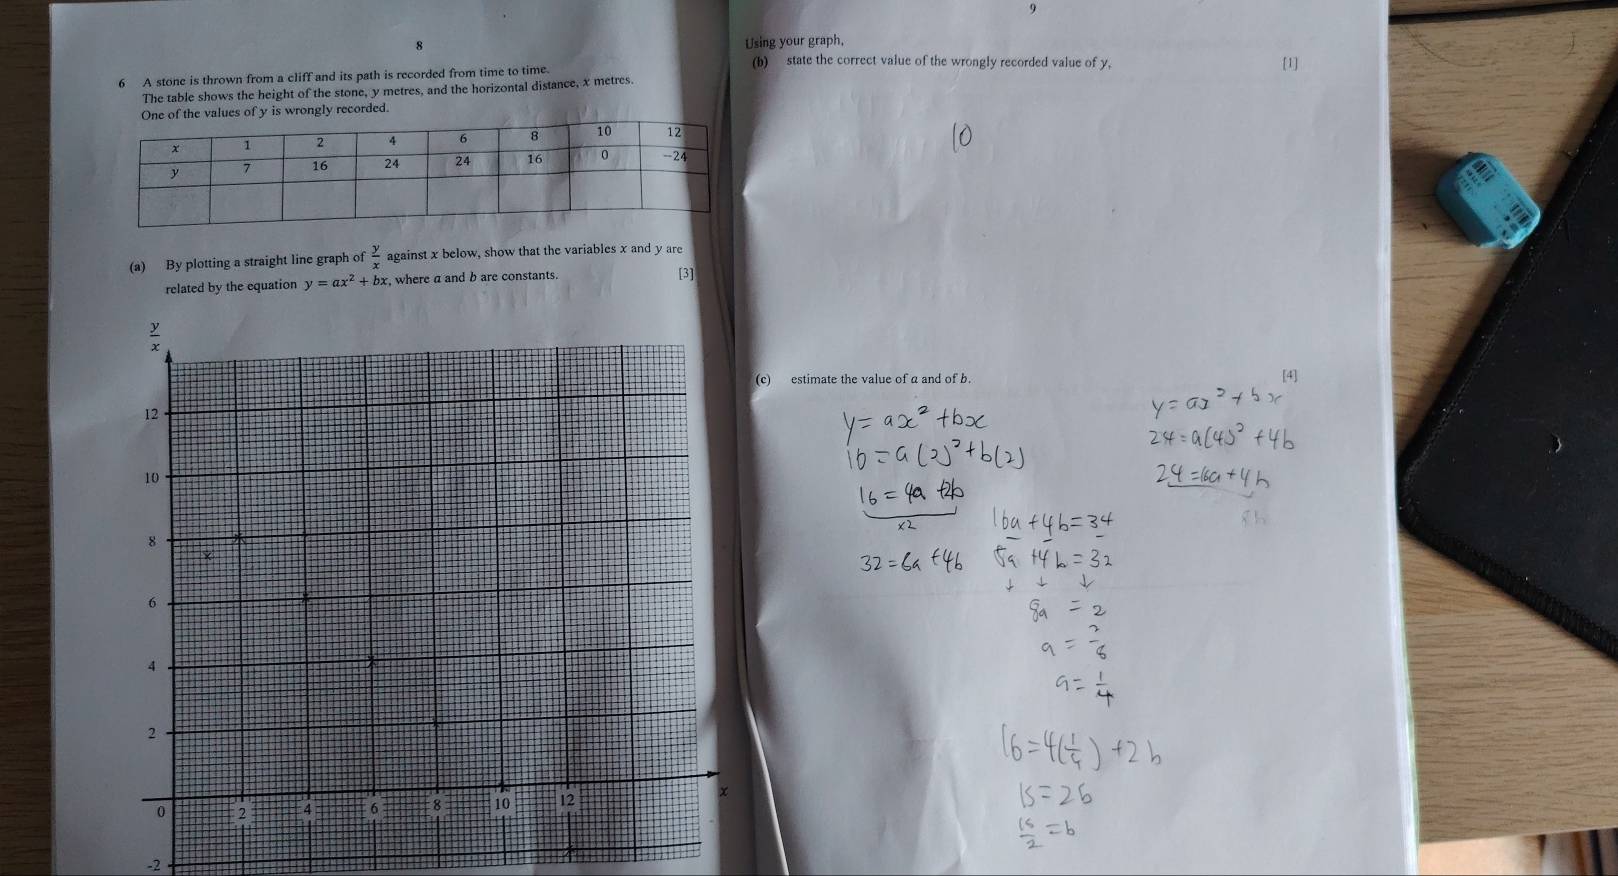 8
6 A stone is thrown from a cliff and its path is recorded from time to time.
The table shows the height of the stone, y metres, and the horizontal distance, x metres.
One of the values of y is wrongly recorded.
x 1 2 4 6 8 10 12
y 7 16 24 24 16 0 −24
(a) By plotting a straight line graph of y/x against x below, show that the variables x and y are
related by the equation y = ax² + bx, where a and b are constants. [3]
y/x
12
10
8
6
4
2
0 2 4 6 8 10 12 x
-2
9
Using your graph,
(b) state the correct value of the wrongly recorded value of y, [1]
10
(c) estimate the value of a and of b. [4]
y = ax² + bx
16 = a(2)² + b(2)
16 = 4a + 2b
×2
32 = 6a + 4b
y = ax² + bx
24 = a(4)² + 4b
24 = 16a + 4b
16a + 4b = 34
8a + 4b = 32
8a = 2
a = 2/8
a = 1/4
16 = 4(1/4) + 2b
15 = 2b
15/2 = b